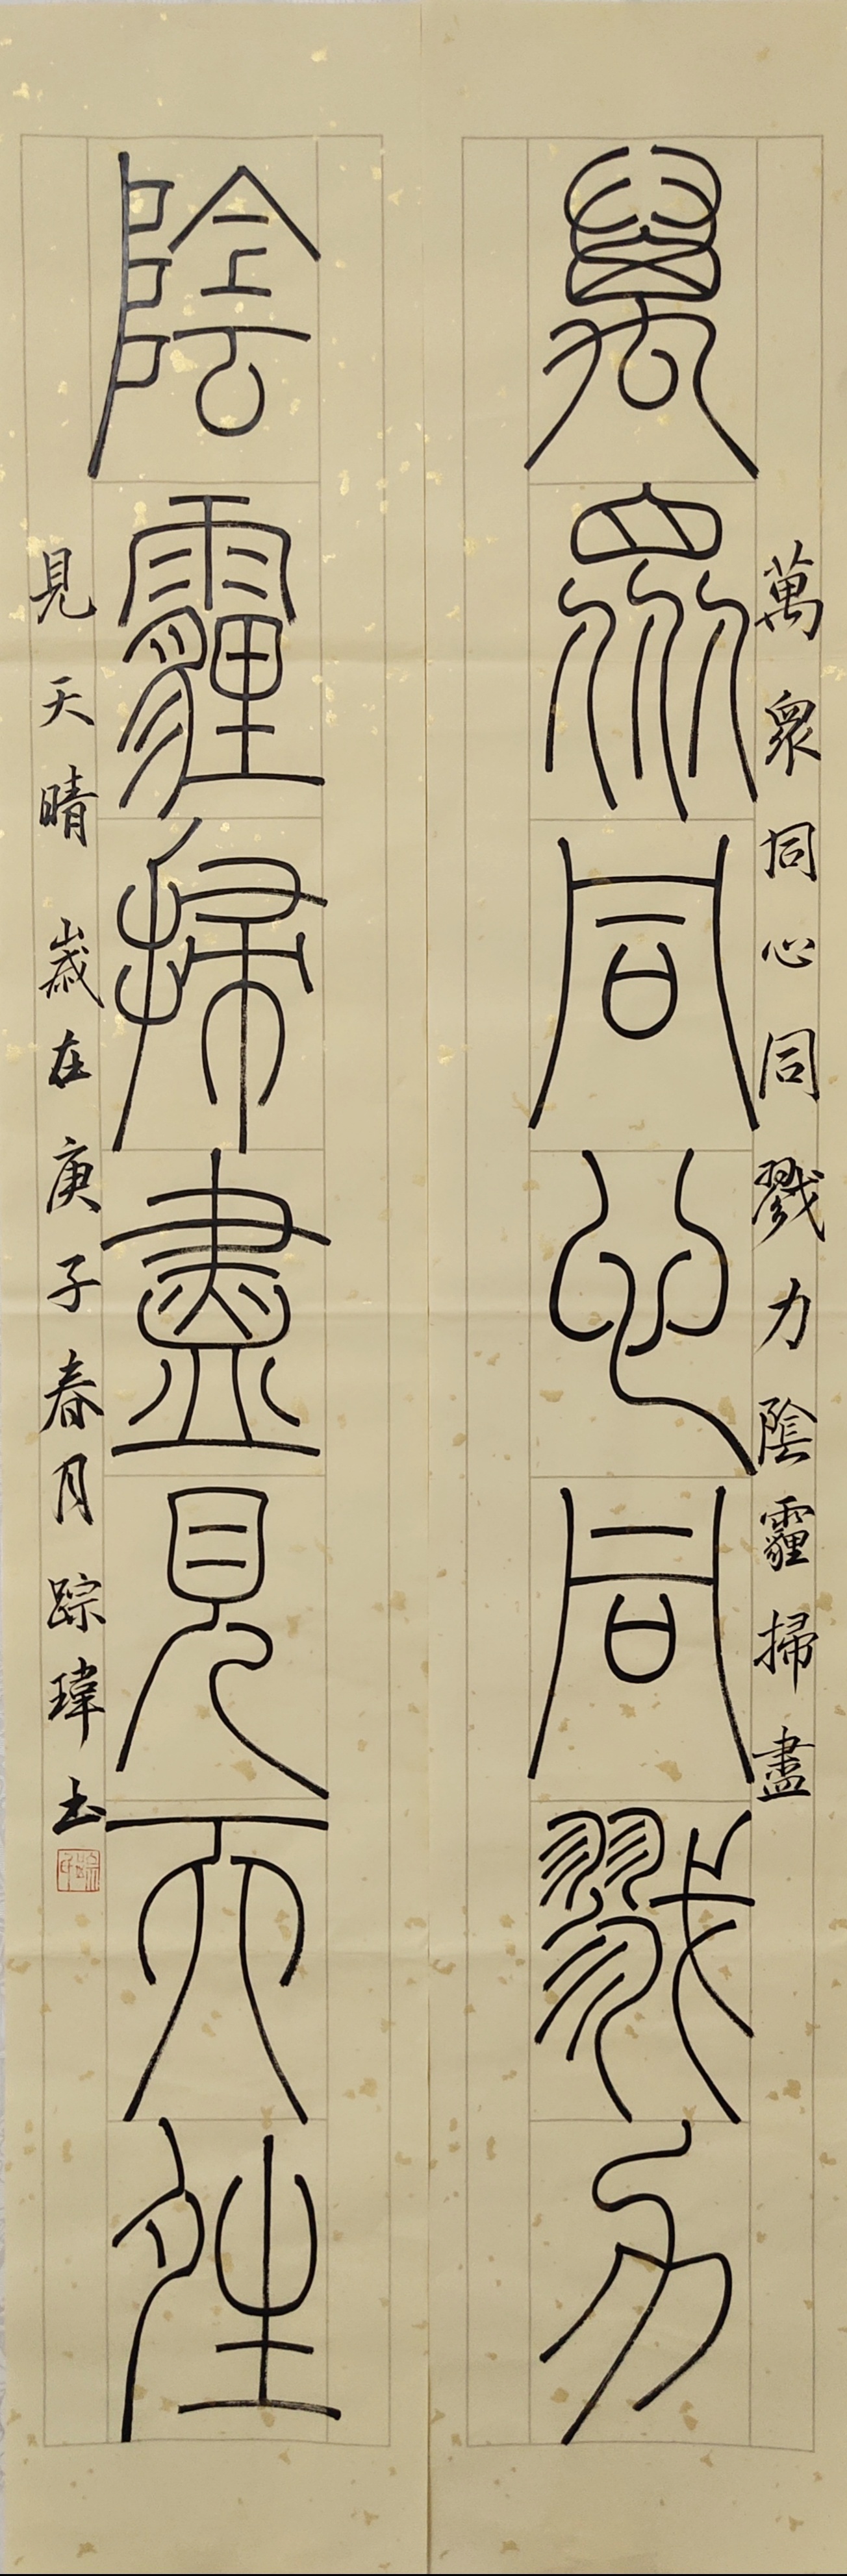 萬眾同心同戮力
陰霾掃盡見天姓
萬眾同心同戮力陰霾掃盡
見天晴 歲在庚子春月踪瑋书